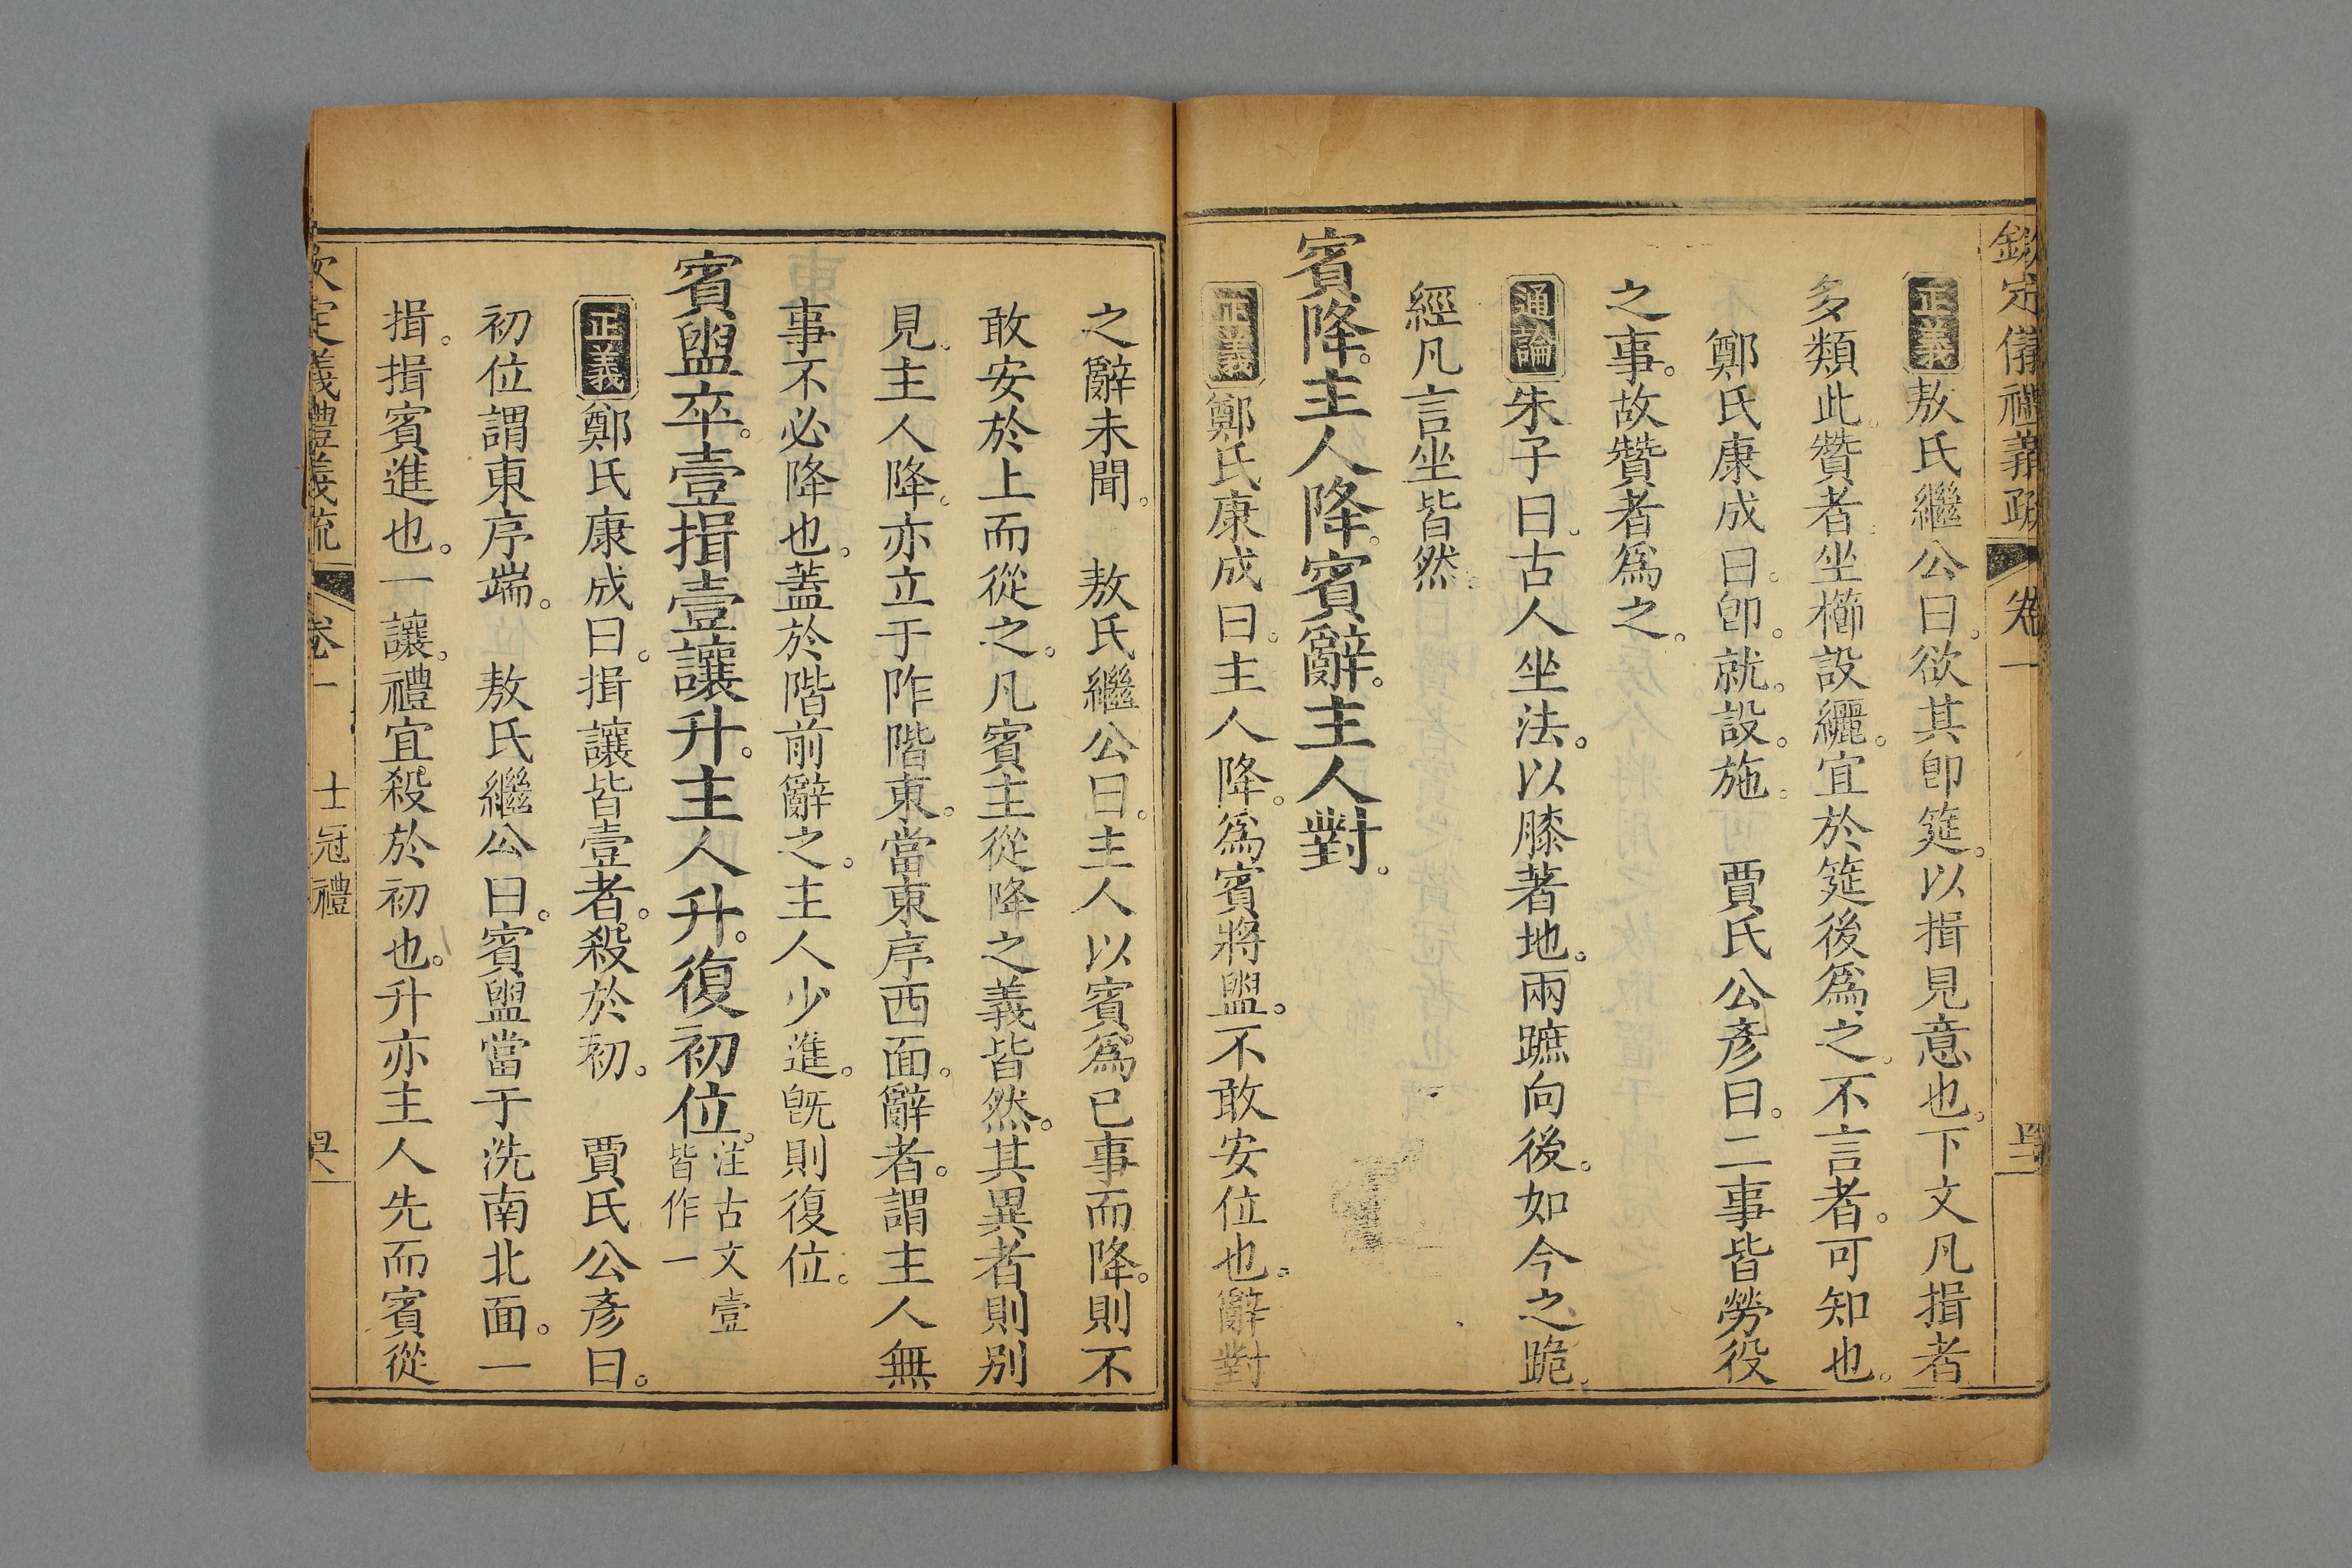 欽定儀禮義疏 卷一
正義敖氏繼公曰。欲其卽筵。以揖見意也。下文凡揖者
多類此。贊者坐櫛設纚。宜於筵後爲之。不言者。可知也。
鄭氏康成曰。卽。就。設。施。 賈氏公彥曰。二事皆勞役
之事。故贊者爲之。
通論朱子曰。古人坐法。以膝著地。兩蹠向後。如今之跪。
經凡言坐皆然。
賓降。主人降。賓辭。主人對。
正義鄭氏康成曰。主人降。爲賓將盥。不敢安位也。辭對
之辭未聞。 敖氏繼公曰。主人以賓爲已事而降。則不
敢安於上而從之。凡賓主從降之義皆然。其異者則别
見。主人降。亦立于阼階東。當東序西面。辭者。謂主人無
事不必降也。蓋於階前辭之。主人少進。旣則復位。
賓盥卒。壹揖壹讓升。主人升。復初位。注古文壹皆作一
正義鄭氏康成曰。揖讓皆壹者。殺於初。 賈氏公彥曰。
初位謂東序端。 敖氏繼公曰。賓盥當于洗南北面。一
揖。揖賓進也。一讓。禮宜殺於初也。升亦主人先而賓從
欽定義禮義疏 卷一 士冠禮